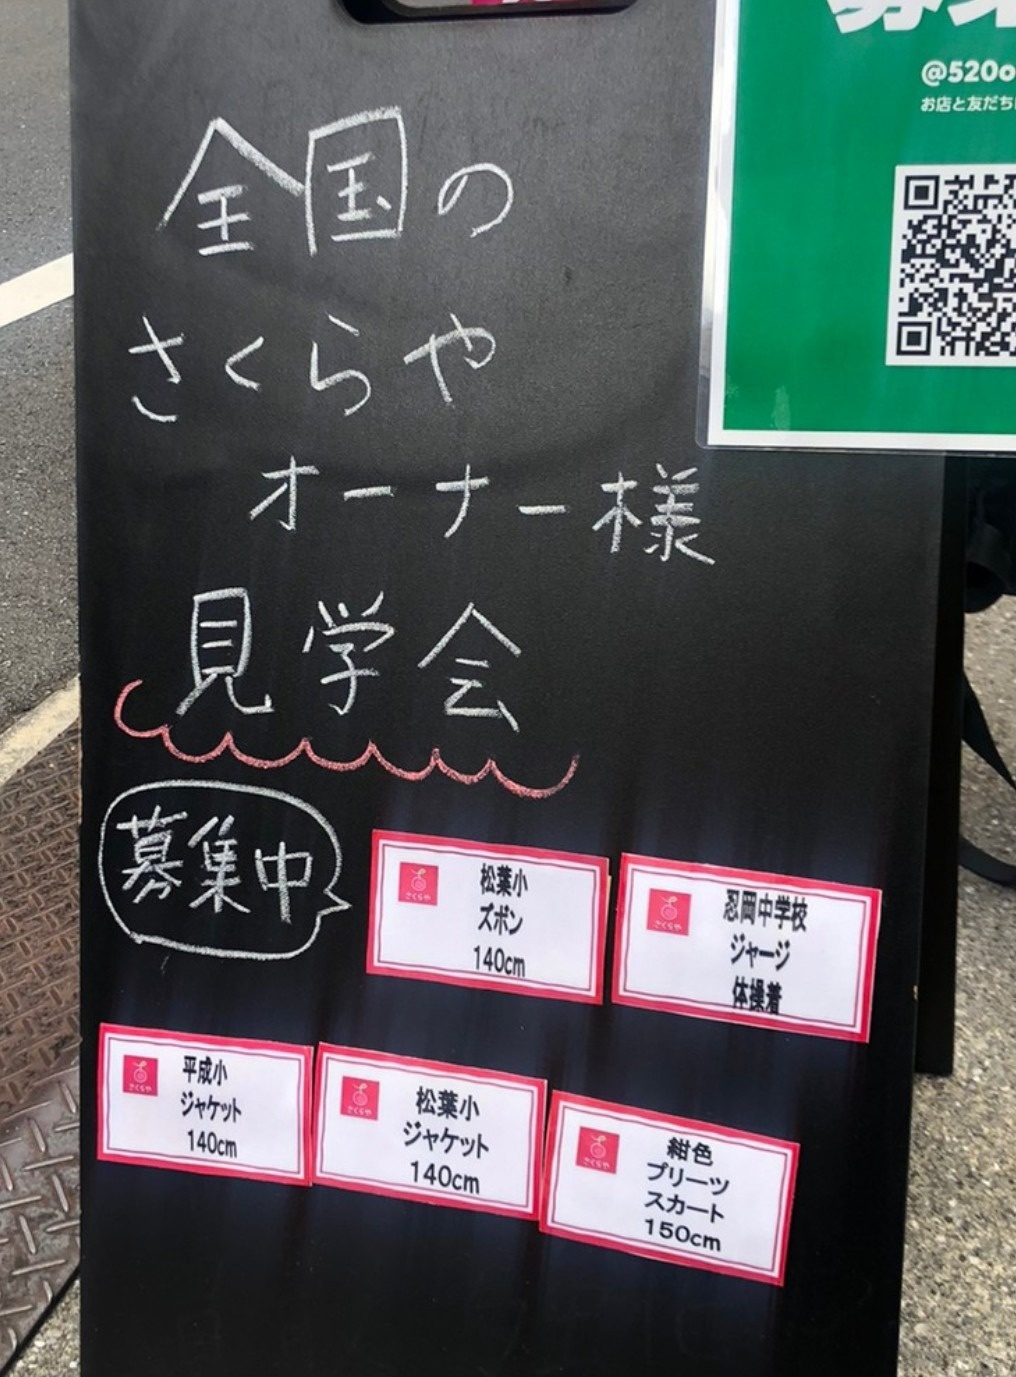 @520o
お店と友だち
全国の
さくらや
オーナー様
見学会
募集中
さくらや
松葉小
ズボン
140cm
さくらや
忍岡中学校
ジャージ
体操着
さくらや
平成小
ジャケット
140cm
さくらや
松葉小
ジャケット
140cm
さくらや
紺色
プリーツ
スカート
150cm